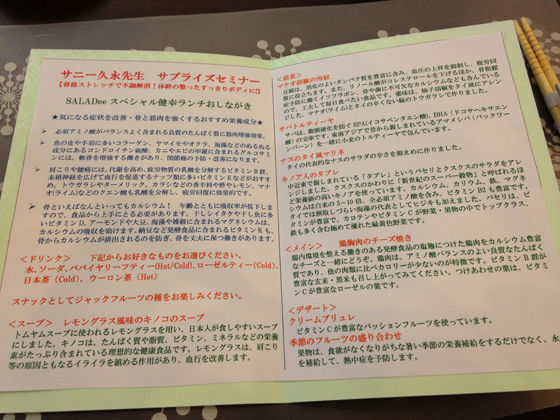 サニー久永先生　サプライズセミナー
【骨格ストレッチで不調解消！体幹の整ったすっきりボディに!】
SALADee スペシャル健幸ランチおしながき
★気になる症状を改善・骨と筋肉を強くするおすすめ栄養成分★
➢ 必須アミノ酸がバランスよく含まれる良質のたんぱく質に筋肉増強効果。
➢ 魚の皮や手羽に多いコラーゲン、ヤマイモやオクラ、海藻などのぬるぬる
成分にあるコンドロイチン硫酸、カニやエビの甲羅に含まれるグルコサミ
ンには、軟骨を増強する働きがあり、関節痛の予防・改善になります。
➢ 肩こりや腰痛には、代謝を高め、疲労物質の乳酸を分解するビタミンB群、
未梢神経を広げて血行を促進するナッツ類に多いビタミンEなどがおすす
め。トウガラシやターメリック、カラシなどの香辛料や酢やレモン、マナ
オ(ライム)などのクエン酸も乳酸を分解し、疲労回復に効果的です。
➢ 骨といえばなんといってもカルシウム！　年齢とともに吸収率が低下しま
すので、食品から上手にとる必要があります。干しシイタケや干し魚に多
いビタミンD、アーモンドや大豆、海藻や雑穀に含まれるマグネシウムは、
カルシウムの吸収を助けます。納豆など発酵食品に含まれるビタミンKも、
骨からカルシウムが排出されるのを防ぎ、骨を丈夫に保つ働きがあります。
＜ドリンク＞　下記からお好きなものをお選びください。
水、ソーダ、パパイヤリーフティー(Hot/Cold)、ローゼルティー(Cold)、
日本茶（Cold）、ウーロン茶（Hot）
スナックとしてジャックフルーツの種をお楽しみください。
＜スープ＞　レモングラス風味のキノコのスープ
トムヤムスープに使われるレモングラスを用い、日本人が食しやすいスープ
にしました。キノコは、たんぱく質や脂質、ビタミン、ミネラルなどの栄養
素がたっぷり含まれている理想的な健康食品です。レモングラスは、肩こり
等の原因ともなるイライラを鎮める作用があり、血行を改善します。
＜前菜＞
マナオ胡椒の冷奴
豆腐は、消化のよいたんパク質を豊富に含み、血圧の上昇を抑制し、疲労回
復に役立ちます。また、リノール酸がコレステロールを下げるほか、骨粗鬆
症予防に働くイソフラボン、骨や歯に不可欠なカルシウムなども含んでいる
ので、工夫して毎日食べたい食品です。薬味は、柚子胡椒をタイ風にアレン
ジした、マナオ(ライム)とタイの辛くない緑のトウガラシで作りました。
サバトルティーヤ
サバは、動脈硬化を防ぐ EPA(イコサペンタエン酸)、DHA（ドコサヘキサエン
酸）の宝庫です。東南アジアで昔から親しまれているアマメシバ（パックワー
ンバーン）を一緒に小麦のトルティーヤで包んでいます。
ナスのタイ風マリネ
タイの代表的なナスのサラダの辛さを抑えめに作りました。
キノア入のタブレ
中近東で親しまれている「タブレ」というパセリとクスクスのサラダをアレ
ンジしました。クスクスのかわりに「新世紀のスーパー穀物」と呼ばれるほ
ど栄養価の高いキノアを使っています。カルシウム、カリウム、鉄、マグネ
シウムは白米の5～10倍、必須アミノ酸を含み、ビタミンB2も豊富です。
タイでは摂取しづらい海藻の代表としてヒジキも加えました。パセリは、ビ
タミンが豊富で、カロテンやビタミンCが野菜・果物の中でトップクラス、
鉄も多く含む極めて優れた緑黄色野菜です。
＜メイン＞　鶏胸肉のチーズ焼き
腸内環境を整える働きのある発酵食品の塩麹につけた鶏肉をカルシウム豊富
なチーズと一緒にどうぞ。鶏肉は、アミノ酸バランスのよい良質なたんぱく
質であり、他の肉類に比べカロリーが少ないのが特徴です。ビタミンB群が
豊富な玄米・黒米も召し上がってみてください。つけあわせの葉は、ビタミ
ンCが豊富なローゼルの葉です。
＜デザート＞
クリームブリュレ
ビタミンCが豊富なパッションフルーツを使っています。
季節のフルーツの盛り合わせ
果物は、食欲がなくなりがちな暑い季節の栄養補給をするだけでなく、水
を補給して、熱中症を予防します。